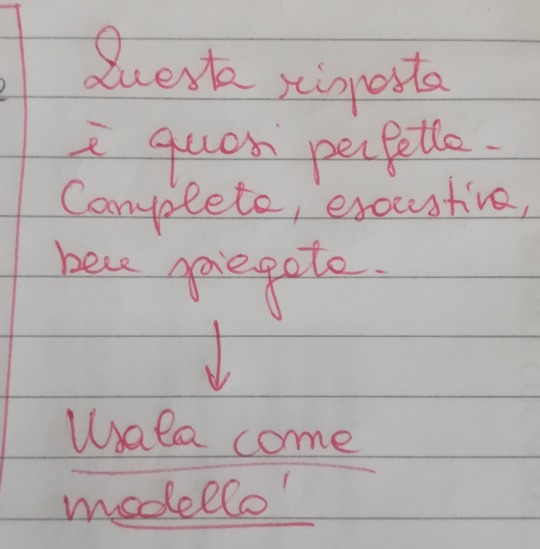 Questa risposta
è quasi perfetta.
Completa, esaustiva,
bene spiegata.
↓
Usala come
modello!